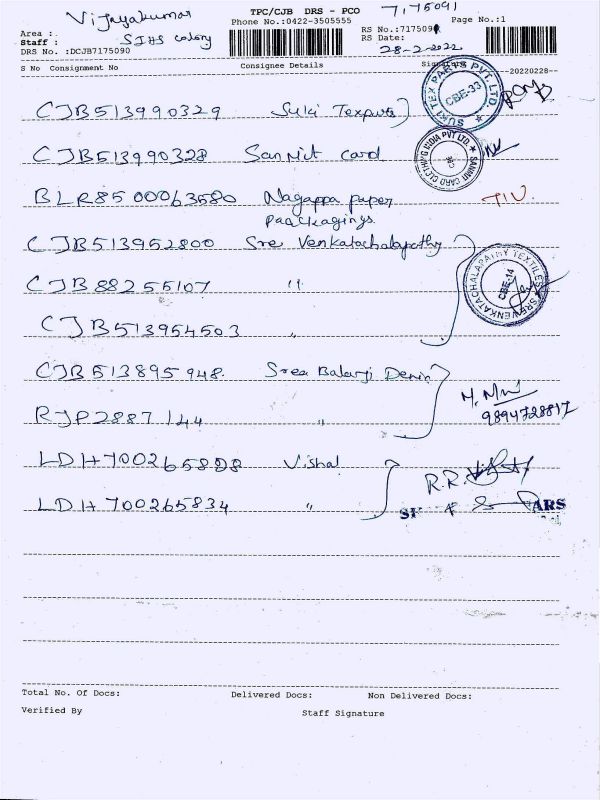 Vijayakumar
TPC/CJB DRS - PCO
7175091
Phone No.:0422-3505555
Page No.:1
Area :
Staff : SIHS colony
RS No.:7175091
RS Date:
28-2-2022
DRS No. :DCJB7175090
S No Consignment No Consignee Details
20220228
CJB513990329 Suki Texparts
SUKI TEX PARTS PVT. LTD
CBE-33
CJB513990328 Sanmit card
SANMIT CARD CLOTHING INDIA PVT LTD.
BLR8500063580 Nagappa paper
Paackagings
CJB513952800 Sree Venkatachalapathy
CJB88255107 "
SREE VENKATACHALAPATHY TEXTILES
CBE-14
CJB513954503 "
CJB513895948 Sree Balaji Denim
RJP2887144 "
9894728817
LDH700265828 Vishal
R.R.
LDH700265834 "
ARS
Total No. Of Docs: Delivered Docs: Non Delivered Docs:
Verified By Staff Signature